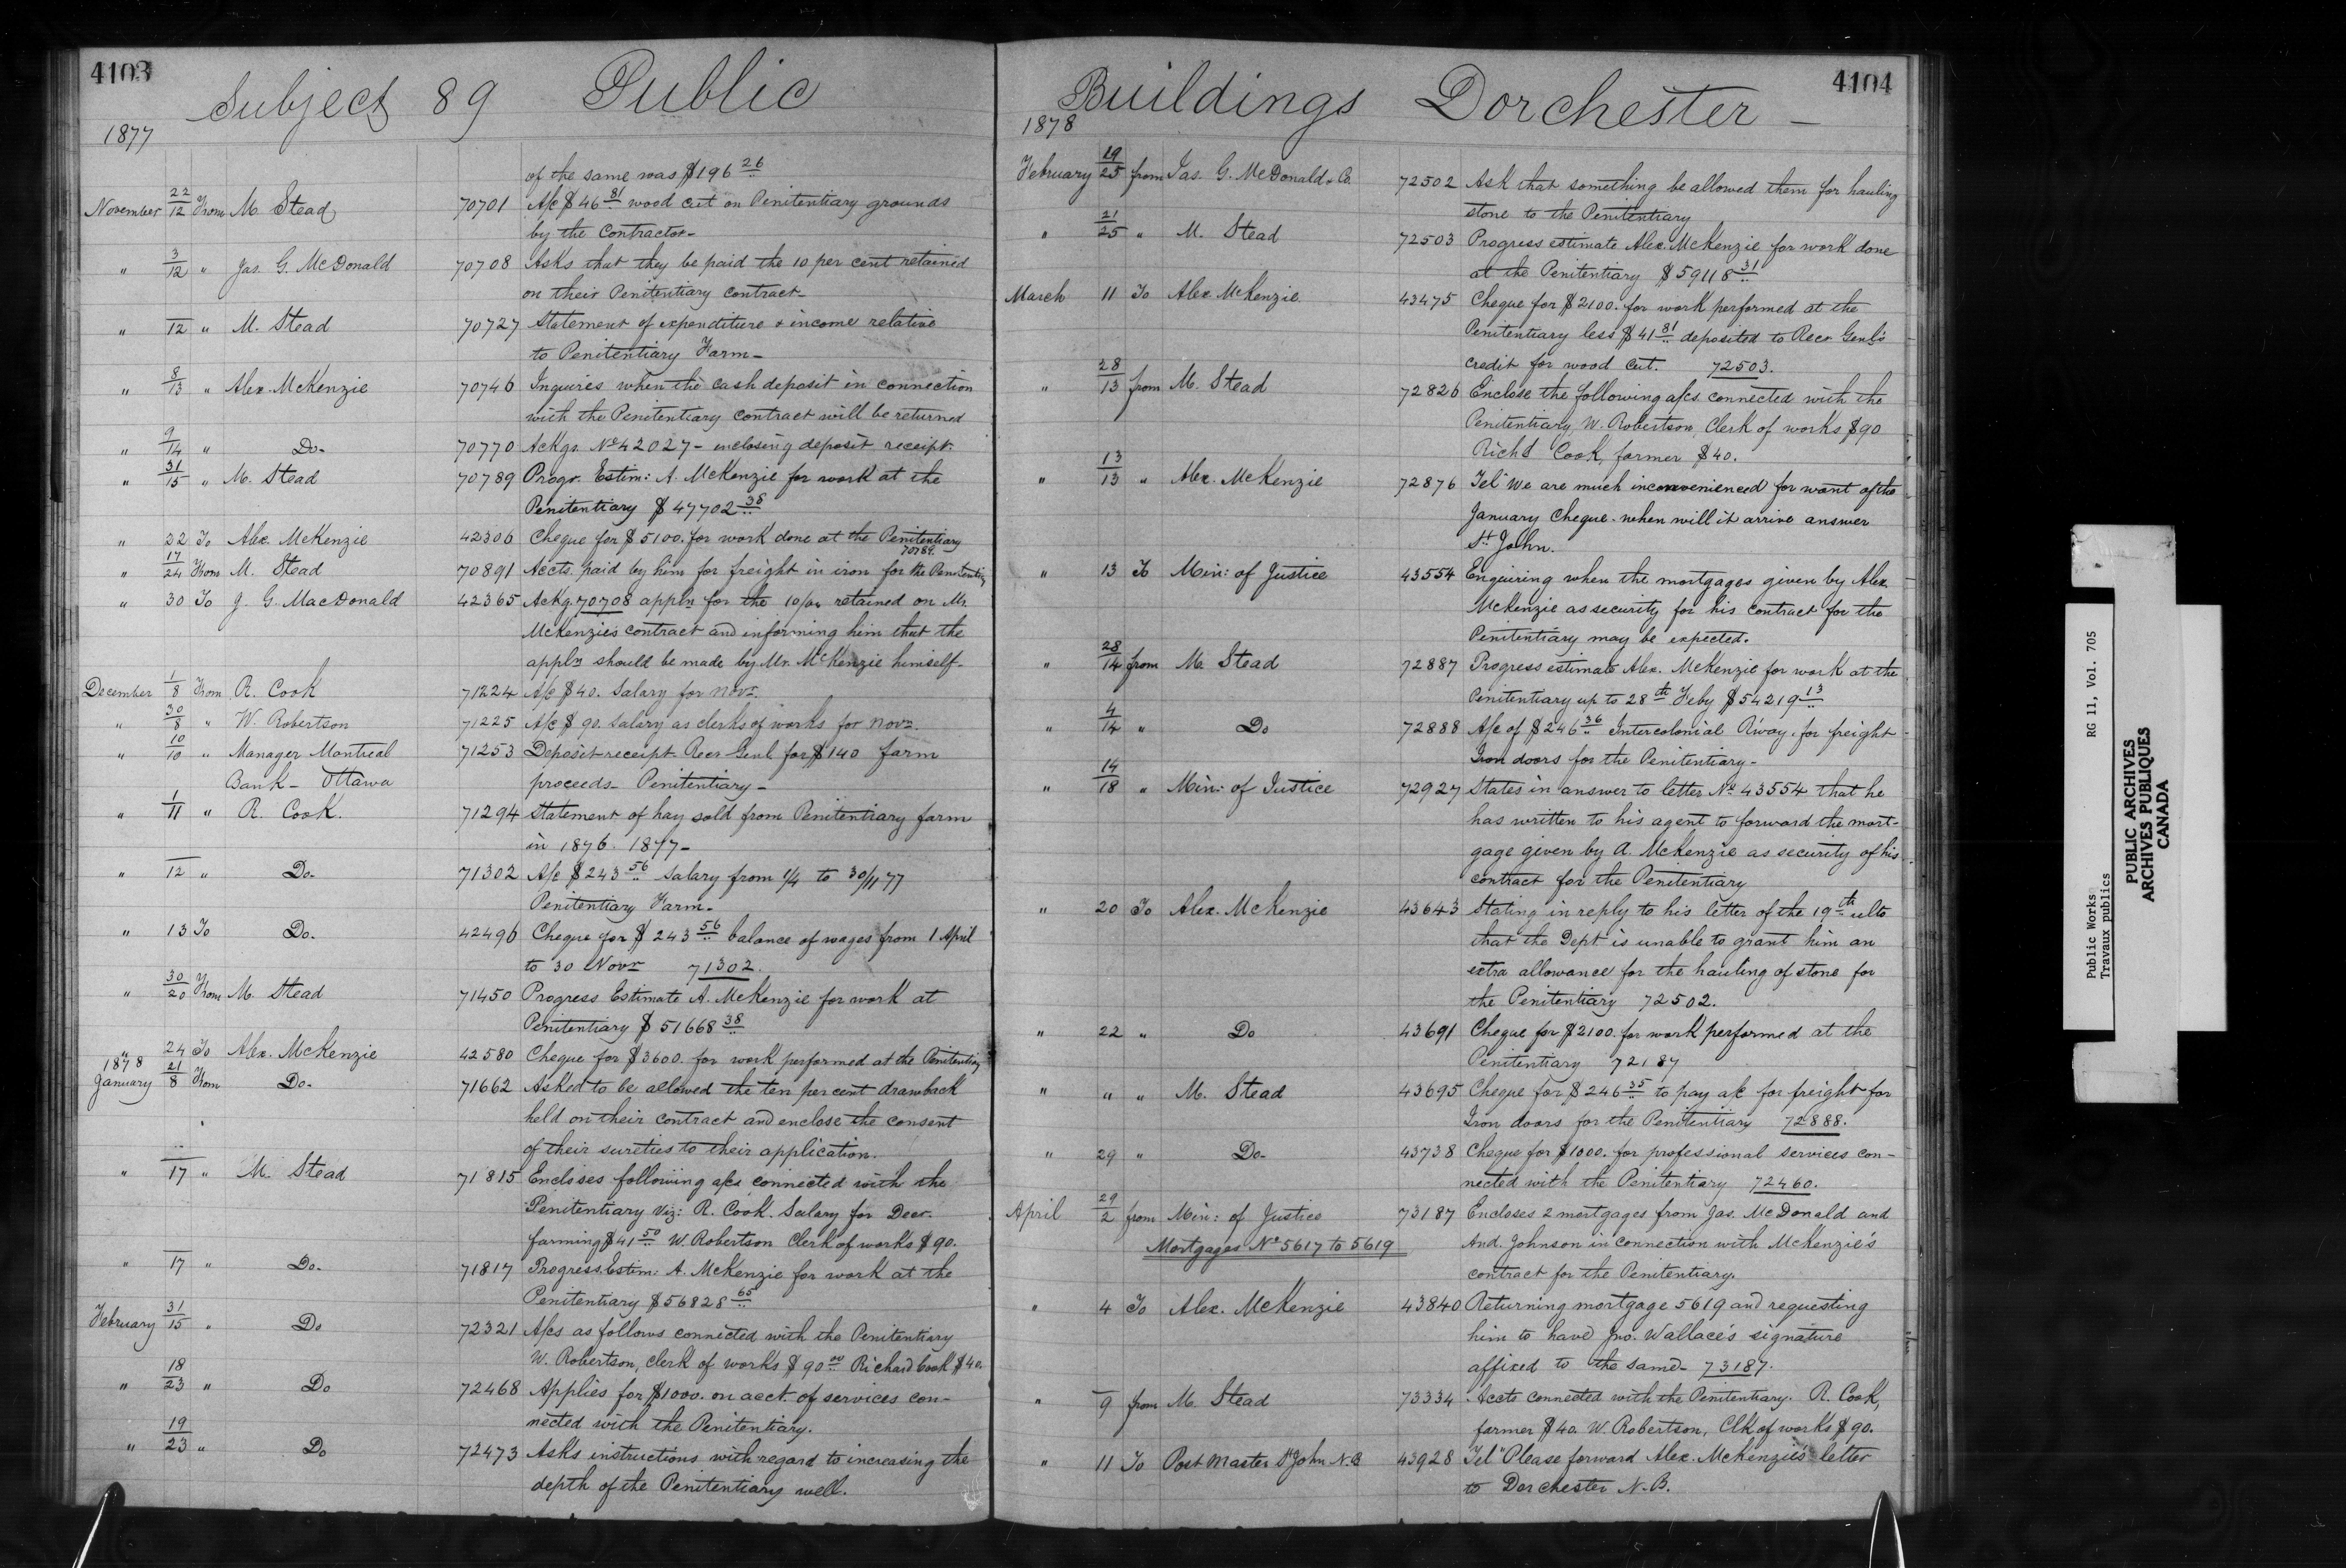 4103
Subject 89 Public
1877
of the same was $196 26
November 22/12 From M. Stead 70701 A/c $46 81 wood cut on Penitentiary grounds
by the Contractor-
" 3/12 " Jas. G. McDonald 70708 Asks that they be paid the 10 per cent retained
on their Penitentiary contract-
" —/12 " M. Stead 70727 Statement of expenditure & income relative
to Penitentiary Farm-
" 8/13 " Alex. McKenzie 70746 Inquires when the cash deposit in connection
with the Penitentiary contract will be returned
" 9/14 " Do- 70770 Ackgs. No 42027- enclosing deposit receipt.
" 31/15 " M. Stead 70789 Progr. Estim: A. McKenzie for work at the
Penitentiary $47702 38
" 22 To Alex. McKenzie 42306 Cheque for $5100. for work done at the Penitentiary
70789.
" 17/24 From M. Stead 70891 Accts. paid by him for freight in iron for the Penitentiary
" 30 To J. G. MacDonald 42365 Ackg. 70708 appln for the 10/00 retained on Mr.
McKenzie's contract and informing him that the
appln should be made by Mr. McKenzie himself-
December 1/8 From R. Cook 71224 A/c $40. Salary for Novr.
" 30/8 " W. Robertson 71225 A/c $90. Salary as clerk of works for Novr.
" 10/10 " Manager Montreal 71253 Deposit receipt Recr Genl for $140 farm
Bank- Ottawa proceeds- Penitentiary-
" 1/11 " R. Cook. 71294 Statement of hay sold from Penitentiary farm
in 1876. 1877-
" —/12 " Do- 71302 A/c $243 56 salary from 1/4 to 30/11 77
Penitentiary Farm-
" 13 To Do. 42496 Cheque for $243 56 balance of wages from 1 April
to 30 Novr 71302.
" 30/20 From M. Stead 71450 Progress Estimate A. McKenzie for work at
Penitentiary $51668 38
" 24 To Alex. McKenzie 42580 Cheque for $3600. for work performed at the Penitentiary
1878
January 21/8 From Do- 71662 Asked to be allowed the ten per cent drawback
held on their contract and enclose the consent
of their sureties to their application.
" —/17 " M. Stead 71815 Encloses following a/cs connected with the
Penitentiary viz: R. Cook. Salary for Decr.
farming $41 50 W. Robertson Clerk of works $90.
" —/17 " Do- 71817 Progress Estim: A. McKenzie for work at the
Penitentiary $56828 65
February 31/15 " Do 72321 A/cs as follows connected with the Penitentiary
W. Robertson, clerk of works $90 00 Richard Cook $40.
" 18/23 " Do 72468 Applies for $1000. on acct. of services con-
nected with the Penitentiary.
" 19/23 " Do 72473 Asks instructions with regard to increasing the
depth of the Penitentiary well.
4104
Buildings Dorchester -
1878
February 19/25 from Jas. G. McDonald & Co. 72502 Ask that something be allowed them for hauling
stone to the Penitentiary
" 21/25 " M. Stead 72503 Progress estimate Alex. McKenzie for work done
at the Penitentiary $59118 31
March 11 To Alex. McKenzie. 43475 Cheque for $2100. for work performed at the
Penitentiary less $41 81 deposited to Recr Genl's
credit for wood cut. 72503.
" 28/13 from M. Stead 72826 Enclose the following a/cs connected with the
Penitentiary, W. Robertson, Clerk of works $90
Richd Cook, farmer $40.
" 13/13 " Alex. McKenzie 72876 Tel "We are much inconvenienced for want of the
January Cheque. when will it arrive answer
St John.
" 13 To Min: of Justice 43554 Enquiring when the mortgages given by Alex.
McKenzie as security for his contract for the
Penitentiary may be expected.
" 28/14 from M. Stead 72887 Progress estimate Alex. McKenzie for work at the
Penitentiary up to 28th Feby $54219 13
" 4/14 " Do 72888 A/c of $246 36 Intercolonial R'way. for freight
Iron doors for the Penitentiary-
" 14/18 " Min: of Justice 72927 States in answer to letter No 43554 that he
has written to his agent to forward the mort-
gage given by A. McKenzie as security of his
contract for the Penitentiary
" 20 To Alex. McKenzie 43643 Stating in reply to his letter of the 19th ulto
that the Dept. is unable to grant him an
extra allowance for the hauling of stone for
the Penitentiary 72502.
" 22 " Do 43691 Cheque for $2100. for work performed at the
Penitentiary 72187
" " " M. Stead 43695 Cheque for $246 35 to pay a/c for freight for
Iron doors for the Penitentiary 72888.
" 29 " Do- 43738 Cheque for $1000. for professional services con-
nected with the Penitentiary 72460.
April 29/2 from Min: of Justice 73187 Encloses 2 mortgages from Jas. McDonald and
Mortgages No 5617 to 5619 And. Johnson in connection with McKenzie's
contract for the Penitentiary.
" 4 To Alex. McKenzie 43840 Returning mortgage 5619 and requesting
him to have Jno. Wallace's signature
affixed to the same- 73187.
" —/9 from M. Stead 73334 Accts connected with the Penitentiary. R. Cook,
farmer $40. W. Robertson, Clk of works $90.
" 11 To Post Master St John N.B 43928 Tel "Please forward Alex. McKenzie's letter
to Dorchester N.B.
Public Works RG 11, Vol. 705
Travaux publics
PUBLIC ARCHIVES
ARCHIVES PUBLIQUES
CANADA